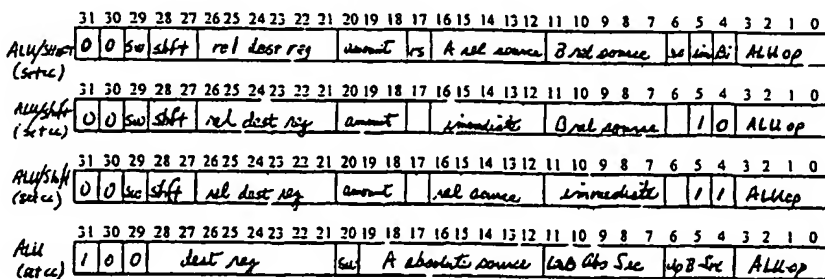 31 30 29 28 27 26 25 24 23 22 21 20 19 18 17 16 15 14 13 12 11 10 9 8 7 6 5 4 3 2 1 0
ALU/SHIFT 0 0 sw shft rel dest reg amount rs A rel source B rel source im Bi ALU op
(setcc)
31 30 29 28 27 26 25 24 23 22 21 20 19 18 17 16 15 14 13 12 11 10 9 8 7 6 5 4 3 2 1 0
ALU/Shift 0 0 sw shft rel dest reg amount immediate B rel source 1 0 ALU op
(setcc)
31 30 29 28 27 26 25 24 23 22 21 20 19 18 17 16 15 14 13 12 11 10 9 8 7 6 5 4 3 2 1 0
ALU/Shift 0 0 shft rel dest reg amount rel source immediate 1 1 ALU op
(setcc)
31 30 29 28 27 26 25 24 23 22 21 20 19 18 17 16 15 14 13 12 11 10 9 8 7 6 5 4 3 2 1 0
ALU 1 0 0 dest reg A absolute source B Abs Src B Src ALU op
(setcc)